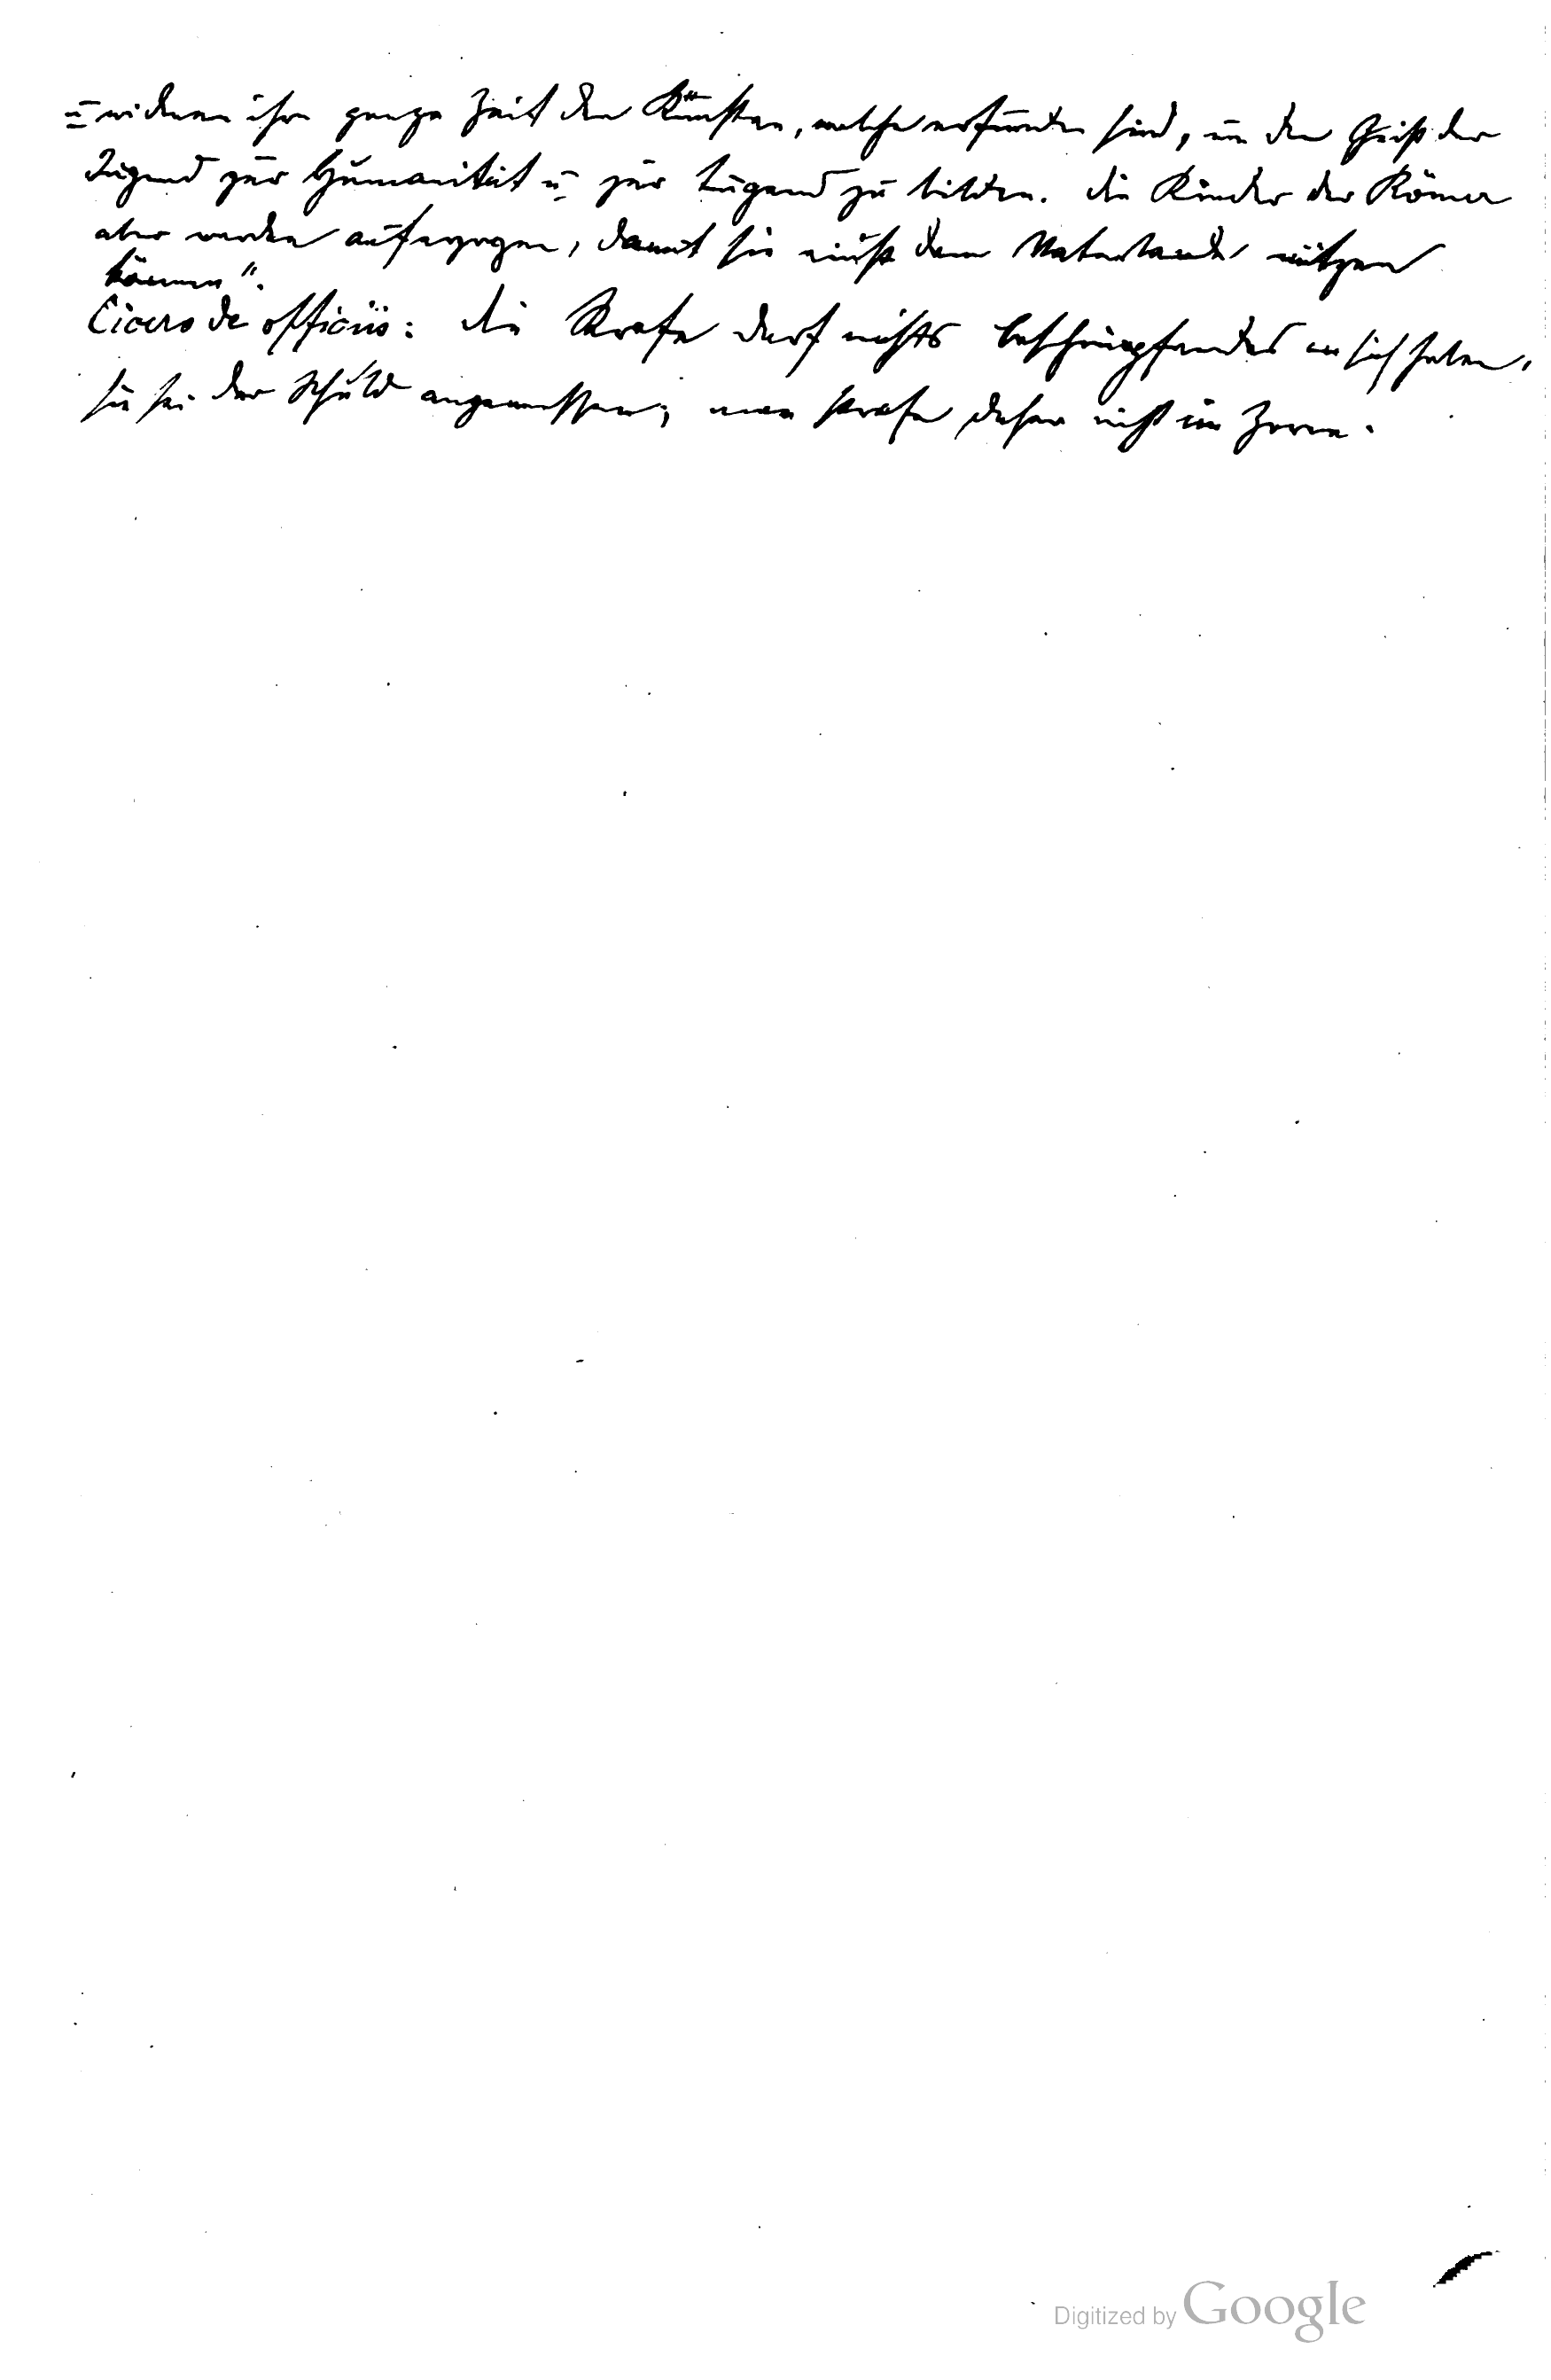 u widmen ihre ganze Zeit den Künsten, welche erfunden sind, um den Geist der
Jugend zur Humanität u zur Tugend zu bilden. Die Kinder der Römer
aber werden auferzogen, damit sie einst dem Vaterlande nützen
können".
Cicero de officiis: Die Strafe darf nichts beschimpfendes an sich haben,
sie sei der Schuld angemessen; man strafe daher nicht im Zorne.
Digitized by Google